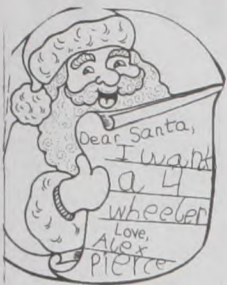 Dear Santa,
I want
a 4
wheeler
Love,
Alex
Pierce